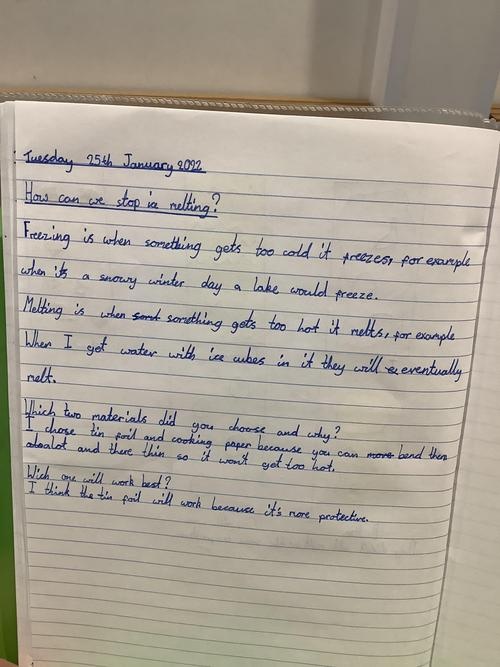 Tuesday 25th January 2022
How can we stop ice melting?
Freezing is when something gets too cold it freezes, for example
when its a snowy winter day a lake would freeze.
Melting is when something gets too hot it melts, for example
When I get water with ice cubes in it they will eventually
melt.
Which two materials did you choose and why?
I chose tin foil and cooking paper because you can bend then
aboalot and there thin so it won't get too hot.
Wich one will work best?
I think the tin foil will work because it's more protective.